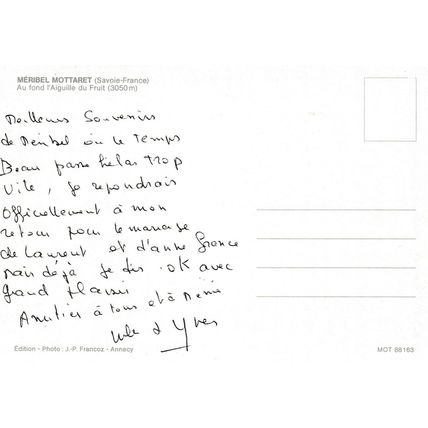 MÉRIBEL MOTTARET (Savoie-France)
Au fond l'Aiguille du Fruit (3050 m)
Meilleurs Souvenirs
de Méribel où le Temps
Beau passe hélas trop
vite, Je repondrais
officiellement à mon
retour pour le mariage
de Laurent et d'anne france
mais déjà je dis ok avec
grand plaisir
Amitiés à tous et à
et Yves
Édition - Photo : J.-P. Francoz - Annecy
MOT 88163